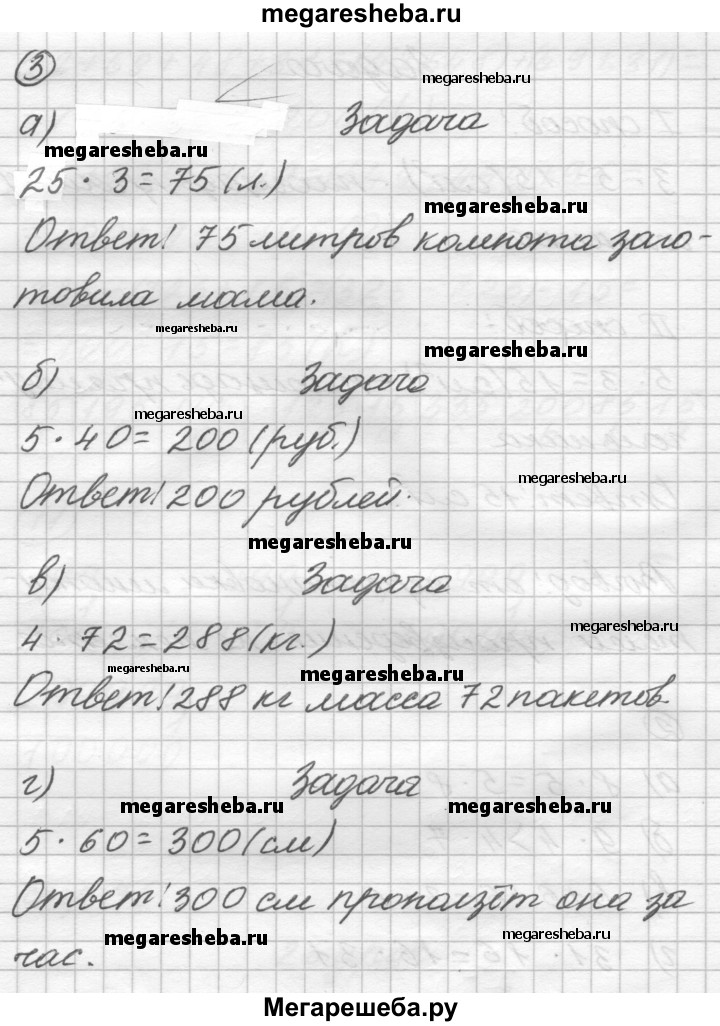 megaresheba.ru
3
megaresheba.ru
а) Задача
megaresheba.ru
25 · 3 = 75 (л.)
megaresheba.ru
Ответ! 75 литров компота заго-
товила мама.
megaresheba.ru
megaresheba.ru
б) Задача
megaresheba.ru
5 · 40 = 200 (руб.)
megaresheba.ru
Ответ! 200 рублей.
megaresheba.ru
в) Задача
megaresheba.ru
4 · 72 = 288 (кг.)
megaresheba.ru
megaresheba.ru
Ответ! 288 кг масса 72 пакетов.
г) Задача
megaresheba.ru
megaresheba.ru
5 · 60 = 300 (см)
Ответ! 300 см проползёт она за
megaresheba.ru
megaresheba.ru
час.
Мегарешеба.ру